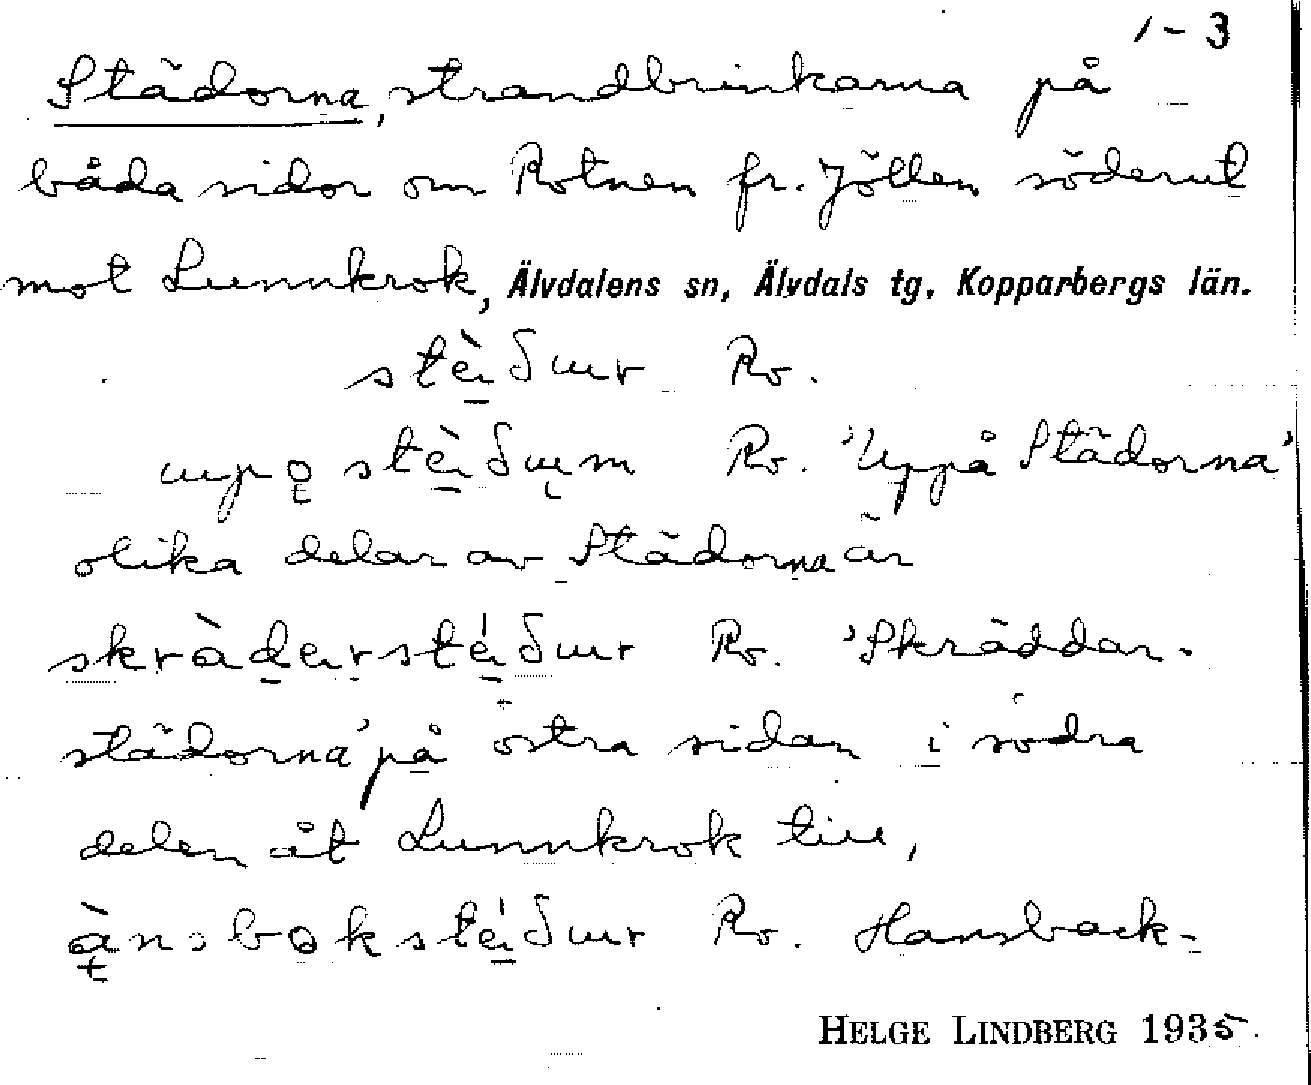 1-3
Städorna, strandbrinkarna på
båda sidor om Rotnen fr. Jöllen söderut
mot Lunnkrok, Älvdalens sn, Älvdals tg, Kopparbergs län.
stèiður Ro.
upǫ stèiðum Ro. 'Uppå Städorna'
olika delar av Städorna är
skràderstéiður Ro. 'Skräddar-
städorna' på östra sidan i södra
delen åt Lunnkrok till,
àns bokstéiður Ro. Hansback-
HELGE LINDBERG 1935.